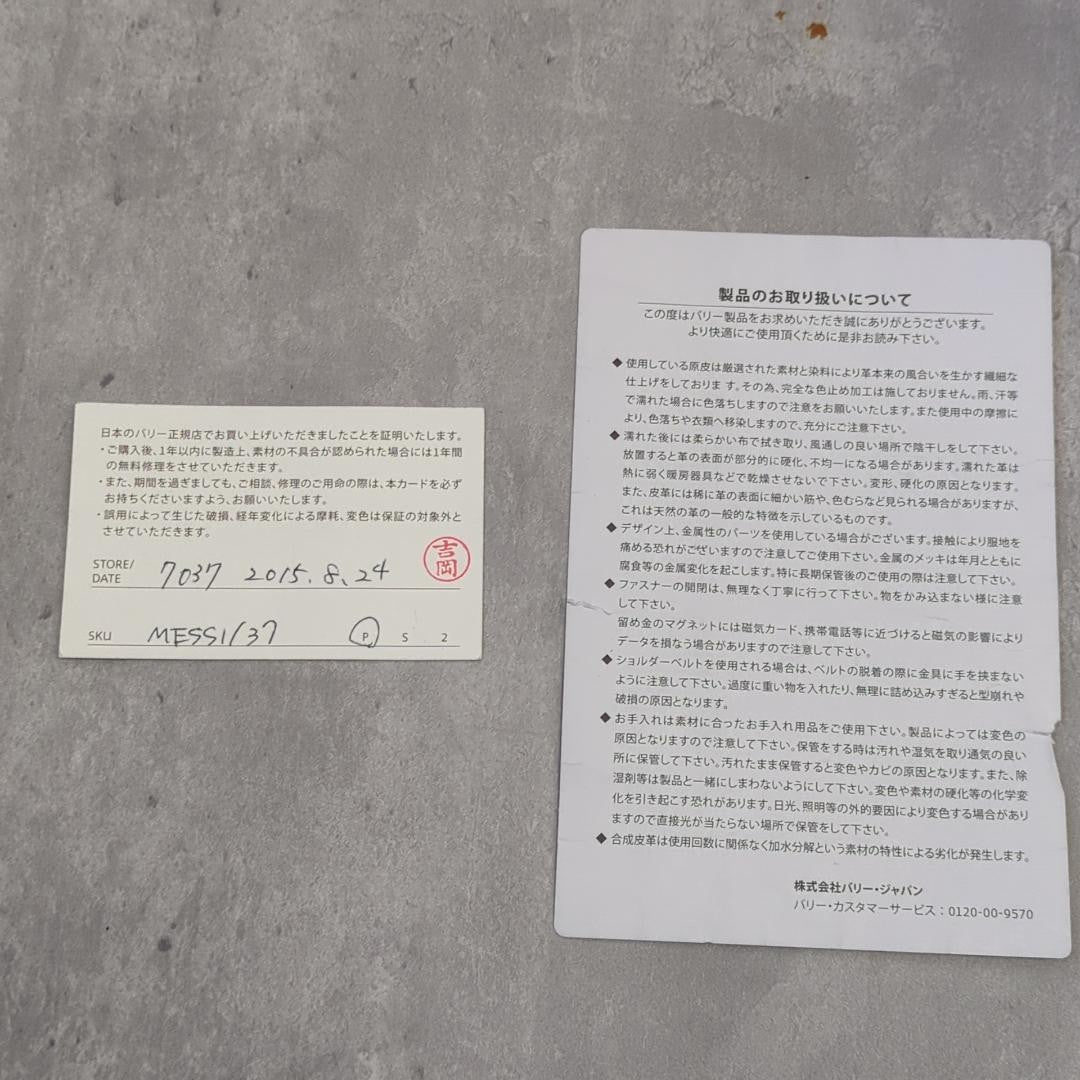 日本のバリー正規店でお買い上げいただきましたことを証明いたします。
・ご購入後、1年以内に製造上、素材の不具合が認められた場合には1年間
の無料修理をさせていただきます。
・また、期間を過ぎましても、ご相談、修理のご用命の際は、本カードを必ず
お持ちくださいますよう、お願いいたします。
・誤用によって生じた破損、経年変化による摩耗、変色は保証の対象外と
させていただきます。
STORE/
DATE 7037 2015.8.24
吉岡
SKU MESSI/37 P S 2
製品のお取り扱いについて
この度はバリー製品をお求めいただき誠にありがとうございます。
より快適にご使用頂くために是非お読み下さい。
◆ 使用している原皮は厳選された素材と染料により革本来の風合いを生かす繊細な
仕上げをしております。その為、完全な色止め加工は施しておりません。雨、汗等
で濡れた場合に色落ちしますので注意をお願いいたします。また使用中の摩擦に
より、色落ちや衣類へ移染しますので、充分にご注意下さい。
◆ 濡れた後には柔らかい布で拭き取り、風通しの良い場所で陰干しをして下さい。
放置すると革の表面が部分的に硬化、不均一になる場合があります。濡れた革は
熱に弱く暖房器具などで乾燥させないで下さい。変形、硬化の原因となります。
また、皮革には稀に革の表面に細かい筋や、色むらなど見られる場合がありますが、
これは天然の革の一般的な特徴を示しているものです。
◆ デザイン上、金属性のパーツを使用している場合がございます。接触により服地を
痛める恐れがございますので注意してご使用下さい。金属のメッキは年月とともに
腐食等の金属変化を起こします。特に長期保管後のご使用の際は注意して下さい。
◆ ファスナーの開閉は、無理なく丁寧に行って下さい。物をかみ込まない様に注意
して下さい。
留め金のマグネットには磁気カード、携帯電話等に近づけると磁気の影響により
データを損なう場合がありますので注意して下さい。
◆ ショルダーベルトを使用される場合は、ベルトの脱着の際に金具に手を挟まない
ように注意して下さい。過度に重い物を入れたり、無理に詰め込みすぎると型崩れや
破損の原因となります。
◆ お手入れは素材に合ったお手入れ用品をご使用下さい。製品によっては変色の
原因となりますので注意して下さい。保管をする時は汚れや湿気を取り通気の良い
所に保管して下さい。汚れたまま保管すると変色やカビの原因となります。また、除
湿剤等は製品と一緒にしまわないようにして下さい。変色や素材の硬化等の化学変
化を引き起こす恐れがあります。日光、照明等の外的要因により変色する場合があり
ますので直接光が当たらない場所で保管をして下さい。
◆ 合成皮革は使用回数に関係なく加水分解という素材の特性による劣化が発生します。
株式会社バリー・ジャパン
バリー・カスタマーサービス：0120-00-9570